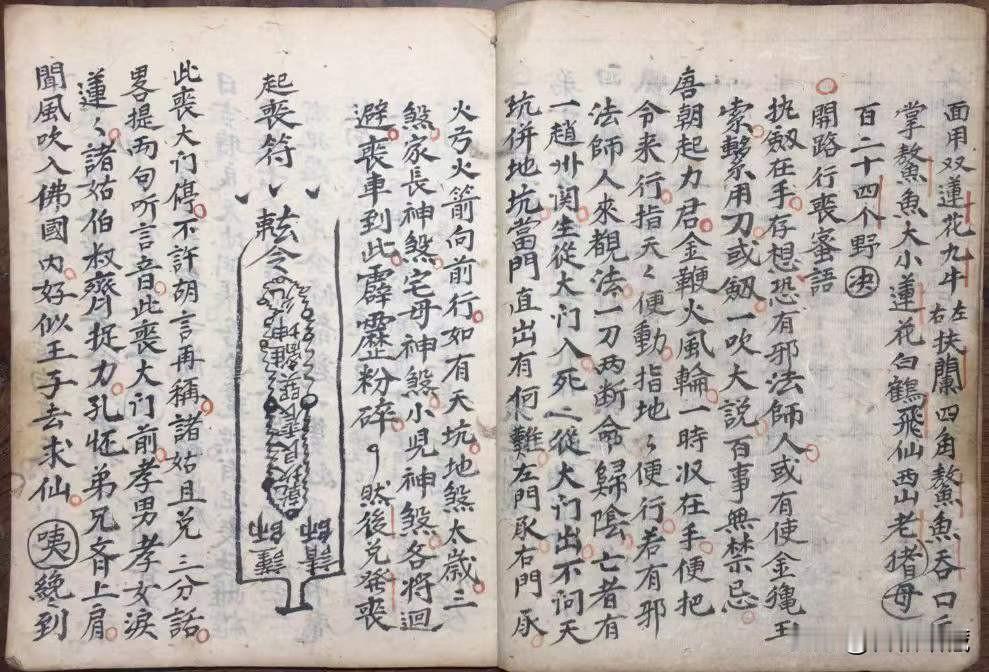 面用双蓮花九牛左右扶蘭四角鰲魚吞口
掌鰲魚魚大小蓮花白鶴飛仙西山老猪母
百二十四个野
開路行喪蜜語
执劔在手存想恐有邪法師人或有使金繩玉
索繫用刀或劔一吹大説百事無禁忌
唐朝起力君金鞭火風輪一時収在手便把
令来行指天〻便動指地〻便行若有邪
法師人來覩法一刀两断命歸陰亡者有
一趙州関生從大门入死〻從大门出不问天
坑併地坑當門直出有何難左門𠂢右門𠂢
火弓火箭向前行如有天坑地煞太歳三
煞家長神煞宅母神煞小児神煞各将迴
避喪車到此霹靂粉碎然後兑發喪
起喪符
令
此喪大门停不許胡言再稱諸姑且兑三分話
畧提两句听言音此喪大门前孝男孝女淚
蓮〻諸姑伯叔齊捉力孔怀弟兄斉上肩
聞風吹入佛國内好似王子去求仙咦繞到